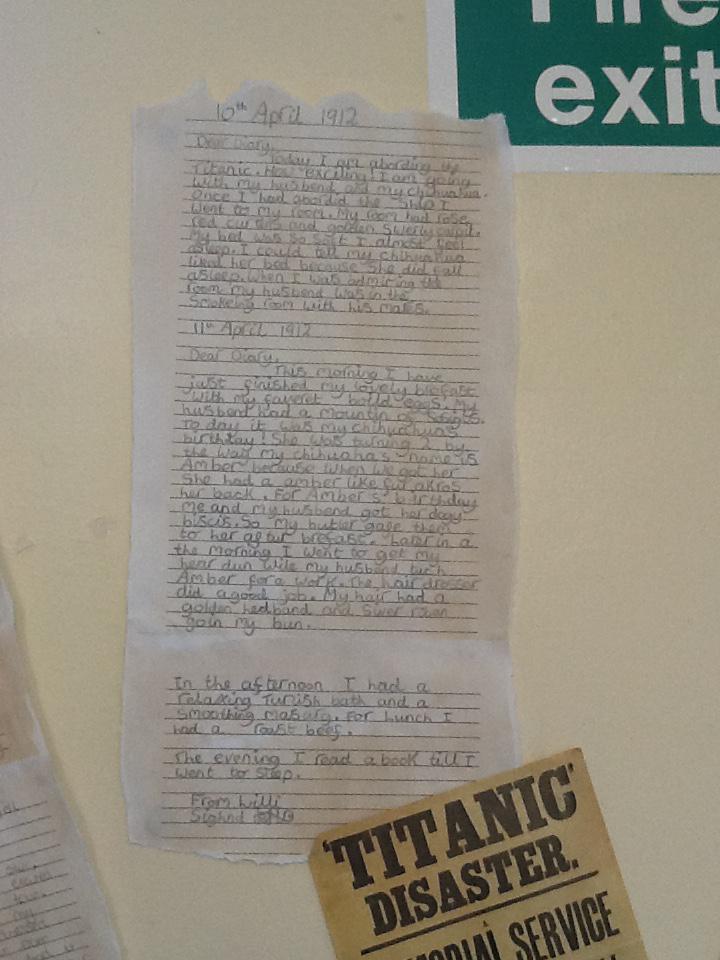 Fire
exit
10th April 1912
Dear Diary,
Today I am abording the
Titanic. How exciting! I am going
with my husbend and my chihuahua.
Once I had abordid the ship I
went to my room. My room had rose
red curtins and golden swerly carpit.
My bed was so soft I almost feel
asleep. I could tell my chihuahua
liked her bed because she did fall
asleep. When I was admiring the
room my husbend was in the
Smokeing room with his mates.
11th April 1912
Dear Diary,
This morning I have
just finished my lovely brefast
with my faveret boild eggs. My
husbend had a mountin of
To day it was my chihuahuas
birthday! She was turning 2. by
the way my chihuaha's name is
Amber because when we got her
She had a amber like fur akros
her back. For Amber's birthday
me and my husbend got her dogy
biscis. So my butler gave them
to her after brefast. Later in a
the morning I went to get my
hear dun wile my husbend tuck
Amber for a work. The hair drosser
did a good job. My hair had a
golden hedband and swer
goin my bun.
In the afternoon I had a
relaxing Turkish bath and a
smoothing masarg. For lunch I
had a roast beef.
The evening I read a book till I
went to sleep.
From Lilli
Sighnd
TITANIC
DISASTER.
MORIAL SERVICE